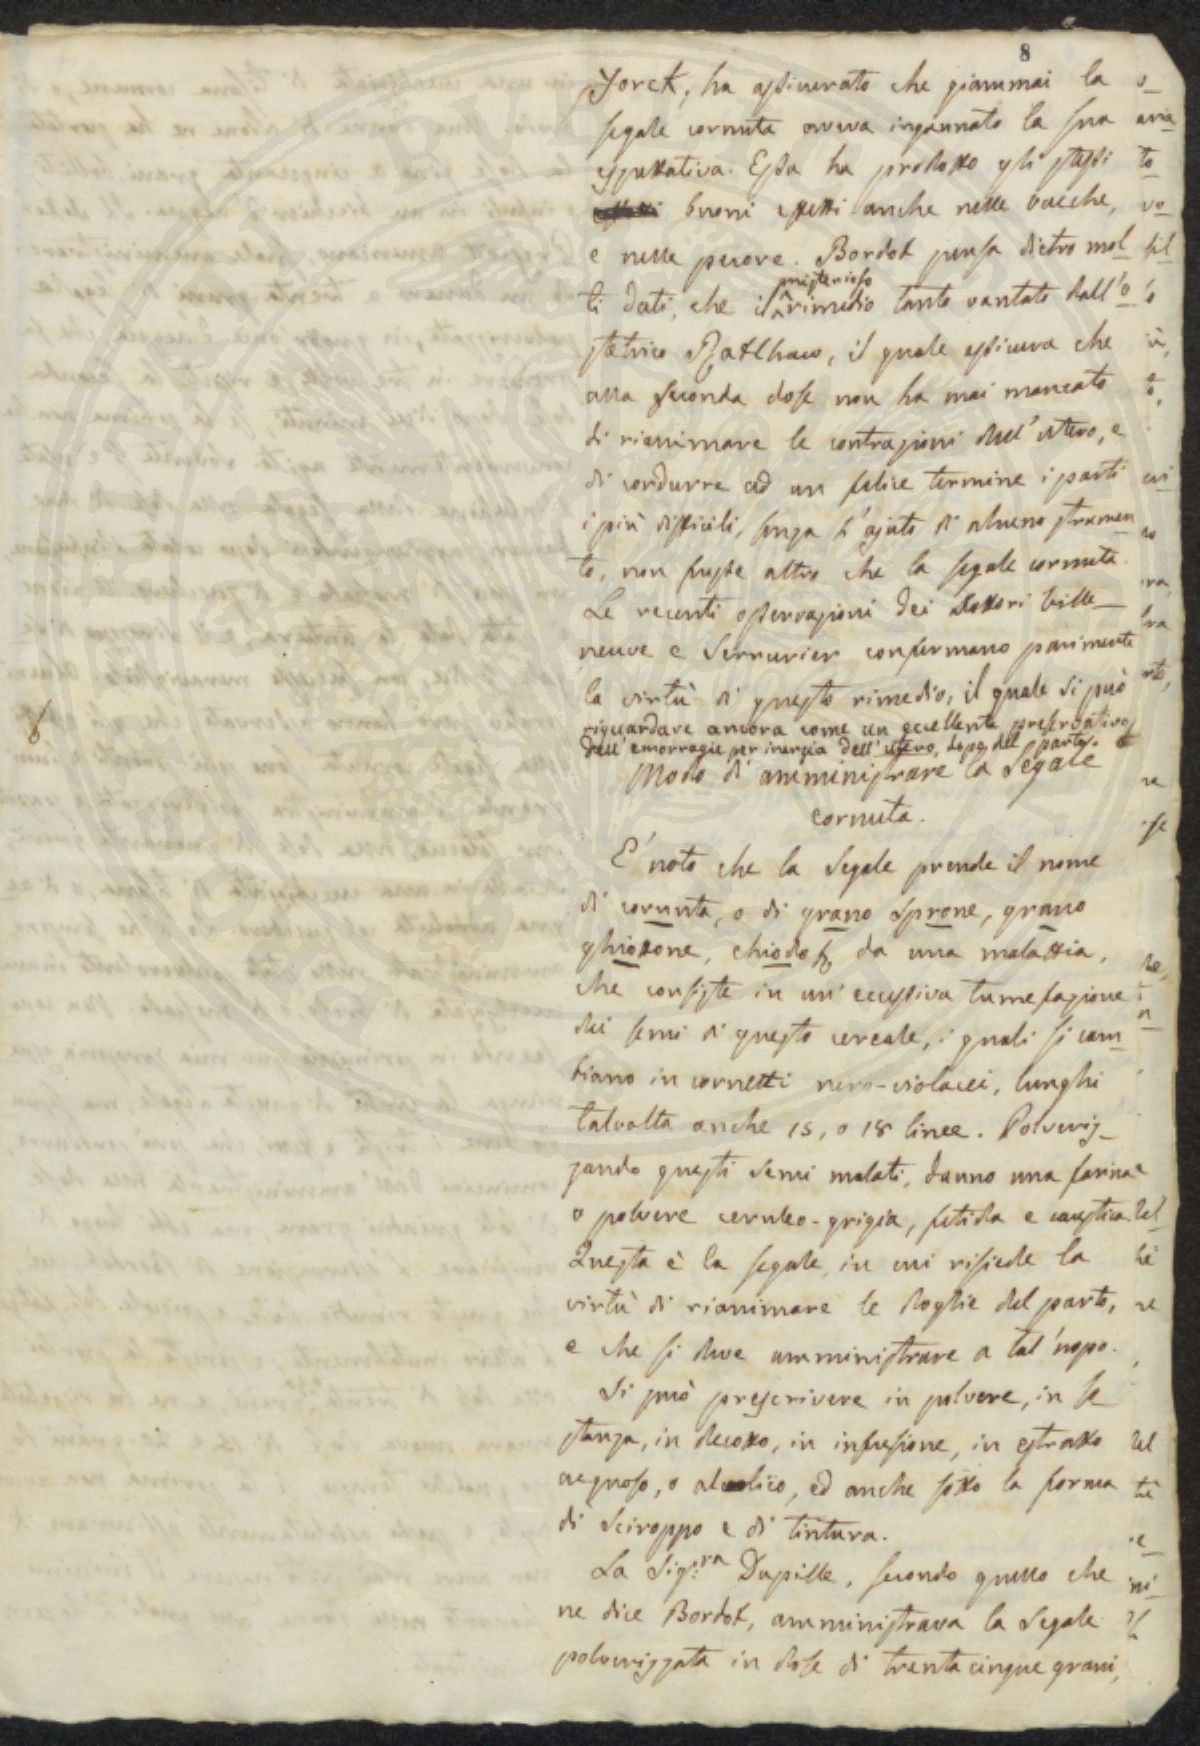 8
Jorck, ha assicurato che giammai la
segale cornuta aveva ingannato la sua
espettativa. Essa ha prodotto gli stessi
buoni effetti anche nelle vacche,
e nelle pecore. Bordot pensa dietro mol
ti dati, che il misterioso rimedio tanto vantato dall'o
stetrico Ratlhaw, il quale assicura che
alla seconda dose non ha mai mancato
di rianimare le contrazioni dell'utero, e
di condurre ad un felice termine i parti
i più difficili, senza l'ajuto di alcuno strumen
to, non fusse altro che la segale cornuta.
Le recenti osservazioni dei dottori Ville_
neuve e Serrurier confermano parimente
la virtù di questo rimedio, il quale si può
riguardare ancora come un eccellente preservativo
dell'emorragie per inerzia dell'utero, dopo del parto.
Modo di amministrare la Segale
cornuta.
E' noto che la Segale prende il nome
di cornuta, o di grano sprone, grano
ghiottone, chiodo & da una malattia,
che consiste in un'eccessiva tumefazione
dei semi di questo cereale, i quali si cam_
biano in cornetti nero-violacei, lunghi
talvolta anche 15, o 18 linee. Polveriz_
zando questi semi malati, danno una farina
o polvere ceruleo-grigia, fetida e caustica.
Questa è la segale, in cui risiede la
virtù di rianimare le doglie del parto,
e che si deve amministrare a tal'uopo.
Si può prescrivere in polvere, in so
stanza, in decotto, in infusione, in estratto
acquoso, o alcolico, ed anche sotto la forma
di Sciroppo e di tintura.
La Sig:ra Dupille, secondo quello che
ne dice Bordot, amministrava la Segale
polverizzata in dose di trentacinque grani,